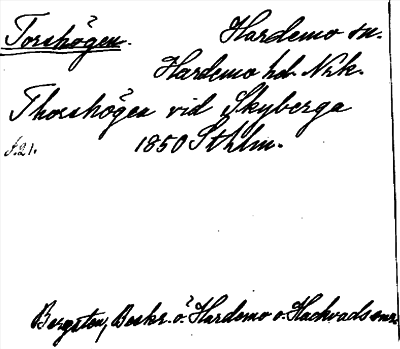 Torshögen. Hardemo sn.
Hardemo hd. Nrk.
Thorshögen vid Skyberga
s. 21. 1850 Sthlm.
Bergsten, Beskr. ö. Hardemo o. Hackvads snr